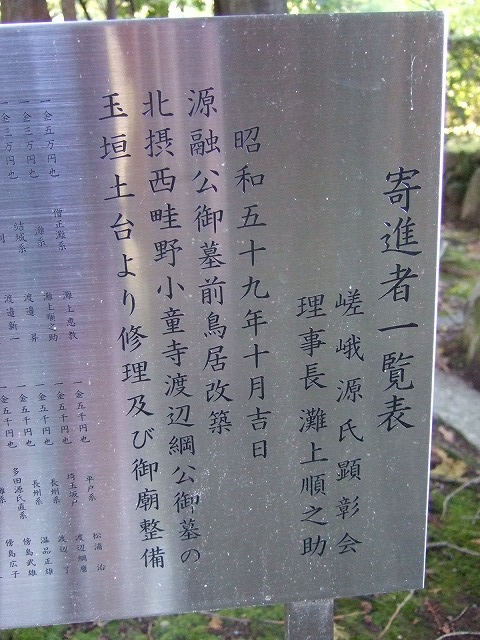 寄進者一覧表
嵯峨源氏顕彰会
理事長 灘上順之助
昭和五十九年十月吉日
源融公御墓前鳥居改築
北摂西畦野小童寺渡辺綱公御墓の
玉垣土台より修理及び御廟整備
一金五万円也 僧正灘系 灘上恵教
一金五万円也 灘系 灘上順之助
一金三万円也 結城系 渡邉昇
一金三万円也 渡邉新一
一金五千円也 平戸系 松浦治
一金五千円也 埼玉坂戸 渡辺綱應
一金五千円也 長州系 渡辺了
一金五千円也 長州系 温品正雄
一金五千円也 多田源氏直系 傍島武雄
傍島広子